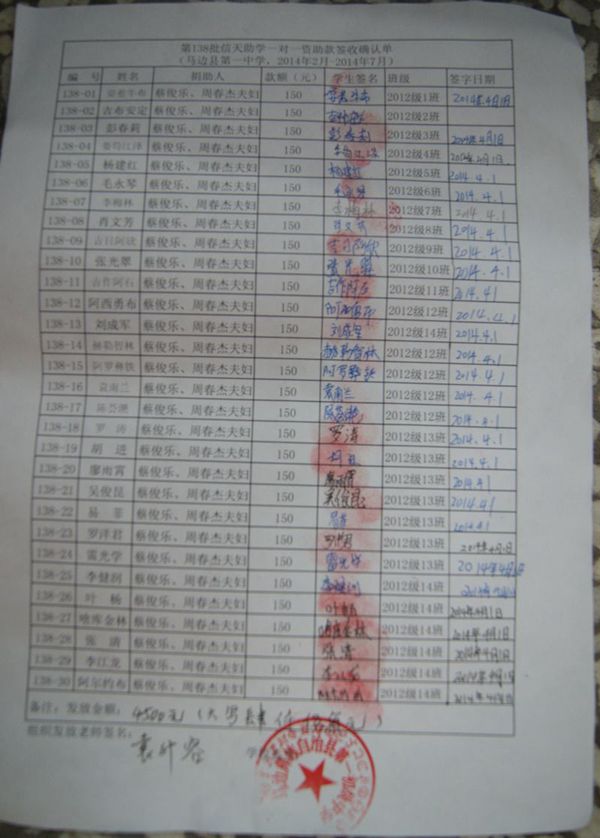 第138批信天助学一对一资助款签收确认单
（马边县第一中学，2014年2月-2014年7月）
编 号 姓名 捐助人 款额（元） 学生签名 班级 签字日期
138-01 蔡俊乐、周春杰夫妇 150 2012级1班 2014年4月1日
138-02 吉布安定 蔡俊乐、周春杰夫妇 150 2012级2班
138-03 彭春莉 蔡俊乐、周春杰夫妇 150 彭春莉 2012级3班 2014年4月1日
138-04 蔡俊乐、周春杰夫妇 150 2012级4班 2014年4月1日
138-05 杨建红 蔡俊乐、周春杰夫妇 150 杨建红 2012级5班 2014.4.1
138-06 毛永琴 蔡俊乐、周春杰夫妇 150 毛永琴 2012级6班 2014.4.1
138-07 李梅林 蔡俊乐、周春杰夫妇 150 李梅林 2012级7班 2014.4.1
138-08 肖文芳 蔡俊乐、周春杰夫妇 150 肖文芳 2012级8班 2014.4.1
138-09 吉日阿欣 蔡俊乐、周春杰夫妇 150 吉日阿欣 2012级9班 2014.4.1
138-10 张光翠 蔡俊乐、周春杰夫妇 150 张光翠 2012级10班 2014.4.1
138-11 吉作阿石 蔡俊乐、周春杰夫妇 150 吉作阿石 2012级11班 2014.4.1
138-12 阿西勇布 蔡俊乐、周春杰夫妇 150 阿西勇布 2012级12班 2014.4.1
138-13 刘成军 蔡俊乐、周春杰夫妇 150 刘成军 2012级14班 2014.4.1
138-14 赫勒智林 蔡俊乐、周春杰夫妇 150 赫勒智林 2012级12班 2014.4.1
138-15 阿罗弹铁 蔡俊乐、周春杰夫妇 150 2012级12班 2014.4.1
138-16 袁南兰 蔡俊乐、周春杰夫妇 150 袁南兰 2012级12班 2014.4.1
138-17 蔡俊乐、周春杰夫妇 150 2012级12班 2014.4.1
138-18 罗 涛 蔡俊乐、周春杰夫妇 150 罗涛 2012级13班 2014.4.1
138-19 胡 进 蔡俊乐、周春杰夫妇 150 胡进 2012级13班 2014.4.1
138-20 廖雨霄 蔡俊乐、周春杰夫妇 150 廖雨霄 2012级13班 2014.4.1
138-21 吴俊昆 蔡俊乐、周春杰夫妇 150 吴俊昆 2012级13班 2014.4.1
138-22 易 菲 蔡俊乐、周春杰夫妇 150 易菲 2012级13班 2014.4.1
138-23 罗洋君 蔡俊乐、周春杰夫妇 150 2012级13班 2014年4月1日
138-24 雷光学 蔡俊乐、周春杰夫妇 150 雷光学 2012级13班 2014年4月1日
138-25 李健润 蔡俊乐、周春杰夫妇 150 李健润 2012级14班
138-26 叶 杨 蔡俊乐、周春杰夫妇 150 叶杨 2012级14班 2014年4月1日
138-27 哈库金林 蔡俊乐、周春杰夫妇 150 2012级14班 2014年4月1日
138-28 张 清 蔡俊乐、周春杰夫妇 150 张清 2012级14班 2014年4月1日
138-29 李江龙 蔡俊乐、周春杰夫妇 150 李江龙 2012级14班 2014年4月1日
138-30 阿尔约布 蔡俊乐、周春杰夫妇 150 2012级14班 2014年4月1日
备注：发放金额： 4500元（大写肆仟伍佰元）
组织发放老师签名：